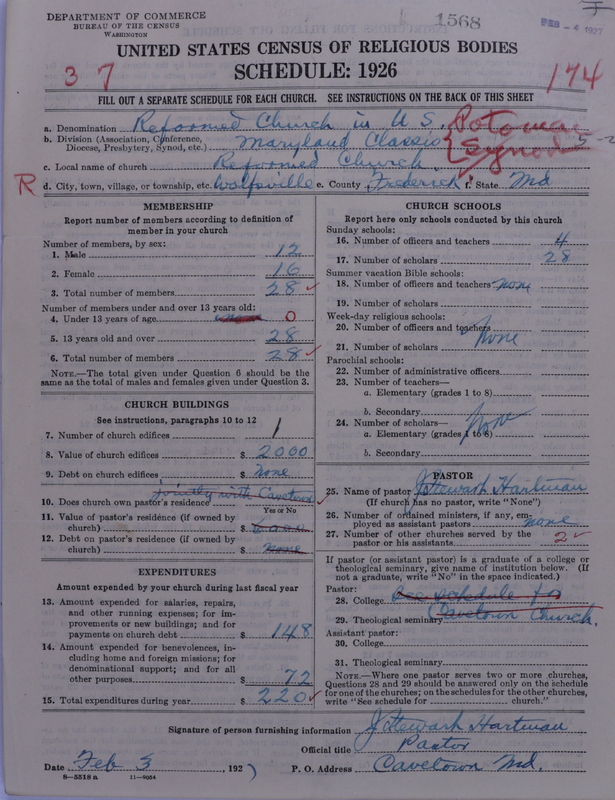 DEPARTMENT OF COMMERCE
BUREAU OF THE CENSUS
WASHINGTON
1568
FEB - 4 1927
UNITED STATES CENSUS OF RELIGIOUS BODIES
37
SCHEDULE: 1926
174
FILL OUT A SEPARATE SCHEDULE FOR EACH CHURCH. SEE INSTRUCTIONS ON THE BACK OF THIS SHEET
a. Denomination Reformed Church in U.S. Potomac
b. Division (Association, Conference, Diocese, Presbytery, Synod, etc.) Maryland Classis Synod
c. Local name of church Reformed Church
R d. City, town, village, or township, etc. Wolfsville e. County Frederick f. State Md
MEMBERSHIP
Report number of members according to definition of
member in your church
Number of members, by sex:
1. Male 12
2. Female 16
3. Total number of members 28
Number of members under and over 13 years old:
4. Under 13 years of age 0
5. 13 years old and over 28
6. Total number of members 28
NOTE.—The total given under Question 6 should be the
same as the total of males and females given under Question 3.
CHURCH BUILDINGS
See instructions, paragraphs 10 to 12
7. Number of church edifices 1
8. Value of church edifices $ 2000
9. Debt on church edifices $ None
jointly with Cavetown
10. Does church own pastor's residence
Yes or No
11. Value of pastor's residence (if owned by
church) $
12. Debt on pastor's residence (if owned by
church) $ none
EXPENDITURES
Amount expended by your church during last fiscal year
13. Amount expended for salaries, repairs,
and other running expenses; for im-
provements or new buildings; and for
payments on church debt $ 148
14. Amount expended for benevolences, in-
cluding home and foreign missions; for
denominational support; and for all
other purposes $ 72
15. Total expenditures during year $ 220
CHURCH SCHOOLS
Report here only schools conducted by this church
Sunday schools:
16. Number of officers and teachers 4
17. Number of scholars 28
Summer vacation Bible schools:
18. Number of officers and teachers none
19. Number of scholars
Week-day religious schools:
20. Number of officers and teachers
None
21. Number of scholars
Parochial schools:
22. Number of administrative officers
23. Number of teachers—
a. Elementary (grades 1 to 8)
b. Secondary
None
24. Number of scholars—
a. Elementary (grades 1 to 8)
b. Secondary
PASTOR
25. Name of pastor J Stewart Hartman
(If church has no pastor, write "None")
26. Number of ordained ministers, if any, em-
ployed as assistant pastors none
27. Number of other churches served by the
pastor or his assistants 2
If pastor (or assistant pastor) is a graduate of a college or
theological seminary, give name of institution below. (If
not a graduate, write "No" in the space indicated.)
Pastor:
28. College See schedule for
29. Theological seminary Cavetown Church.
Assistant pastor:
30. College
31. Theological seminary
NOTE.—Where one pastor serves two or more churches,
Questions 28 and 29 should be answered only on the schedule
for one of the churches; on the schedules for the other churches,
write "See schedule for church."
Signature of person furnishing information J Stewart Hartman
Official title Pastor
Date Feb 3, 1927
P. O. Address Cavetown Md.
8—5518 a 11—9054